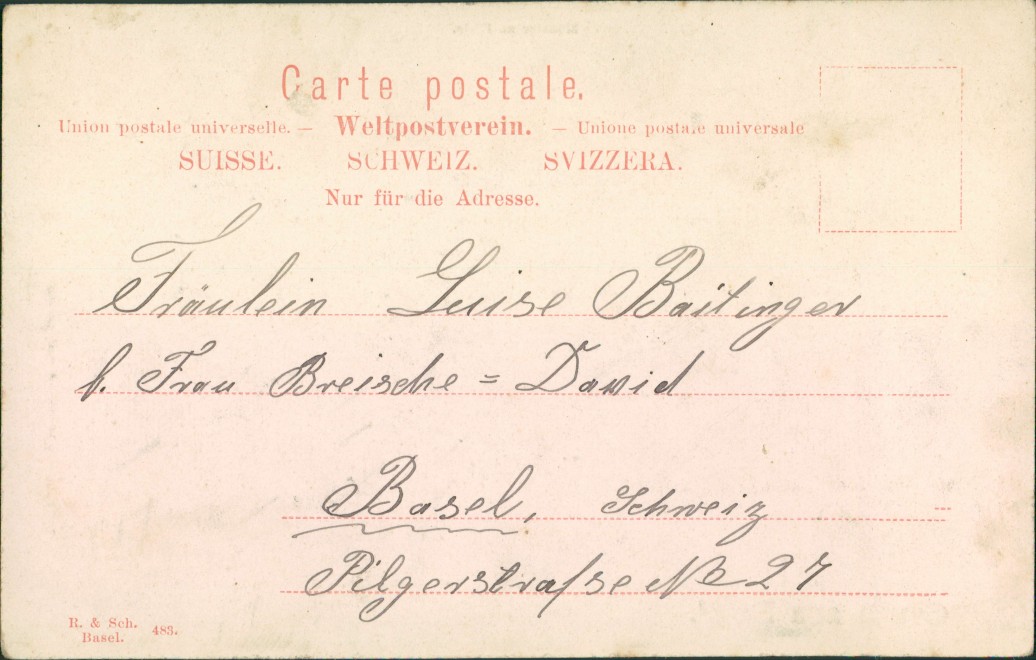 Carte postale.
Union postale universelle. — Weltpostverein. — Unione postale universale
SUISSE. SCHWEIZ. SVIZZERA.
Nur für die Adresse.
Fräulein Luise Baitinger
b. Frau Breische = David
Basel, Schweiz
Pilgerstraße № 27
R. & Sch.
Basel. 483.